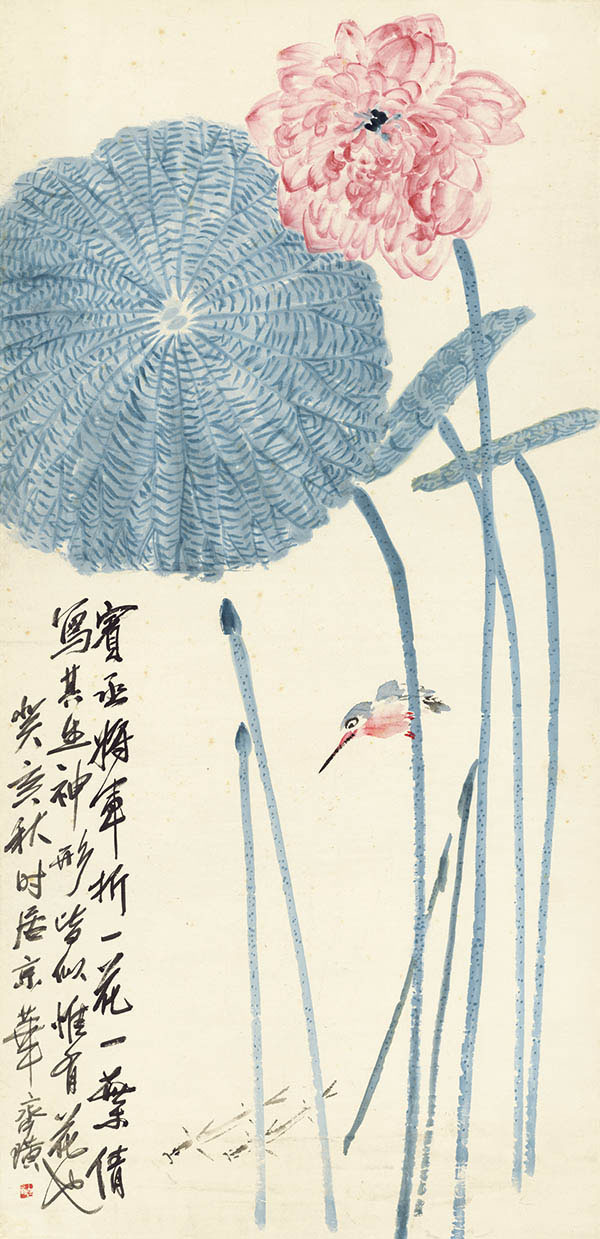 賓丞將軍折一花一葉倩
寫其生神形皆似惟有花也
癸亥秋時居京華齊璜